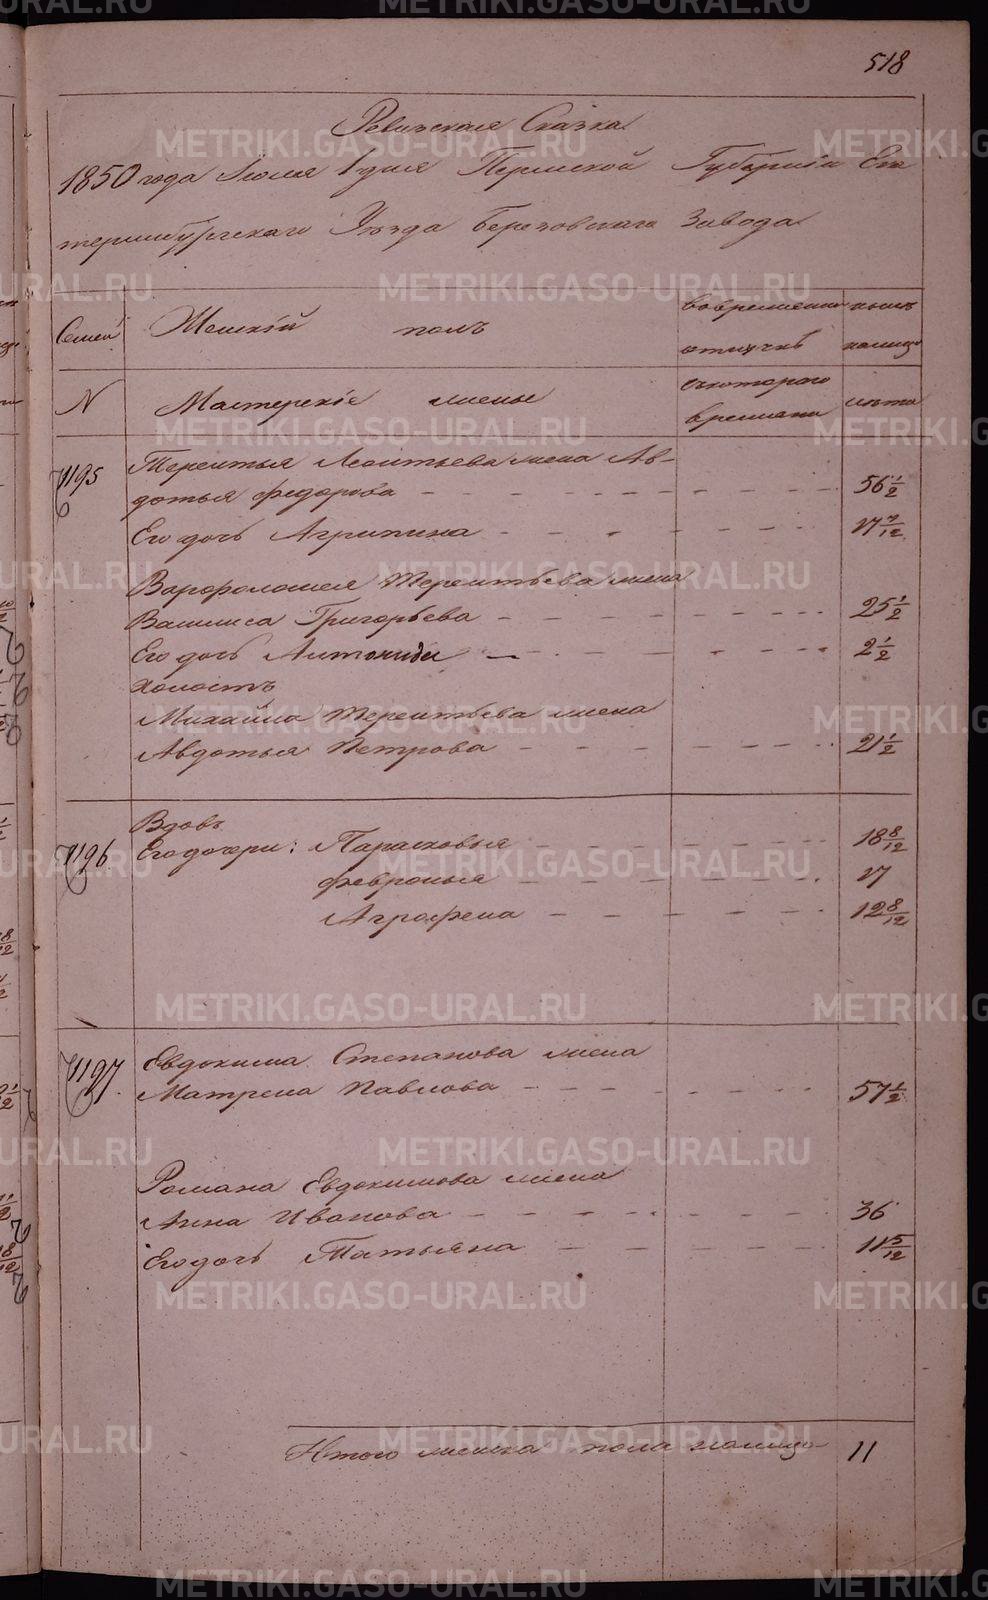 518
Ревизская Сказка
1850 года Июля 1 дня Пермской Губернiи Ека
теринбургскаго Уезда Березовскаго Завода
Семей Женскiй полъ вовременной отлучкѣ нынѣ налицо
N Мастерскiе жены съкотораго времени лѣта
1195 Терентья Леонтьева жена Ав-
дотья Федорова 56 1/2
Его дочь Агрипина 17 7/12
Варфоломея Терентьева жена
Василиса Григорьева 25 1/2
Его дочь Антонида 2 1/2
холостъ
Михайла Терентьева жена
Авдотья Петрова 21 1/2
Вдовъ
1196 Его дочери: Парасковья 18 8/12
Февронья 17
Агрофена 12 8/12
1197 Евдокима Степанова жена
Матрена Павлова 57 1/2
Романа Евдокимова жена
Анна Иванова 36
Его дочь Татьяна 11 5/12
Итого женска пола налицо 11
METRIKI.GASO-URAL.RU